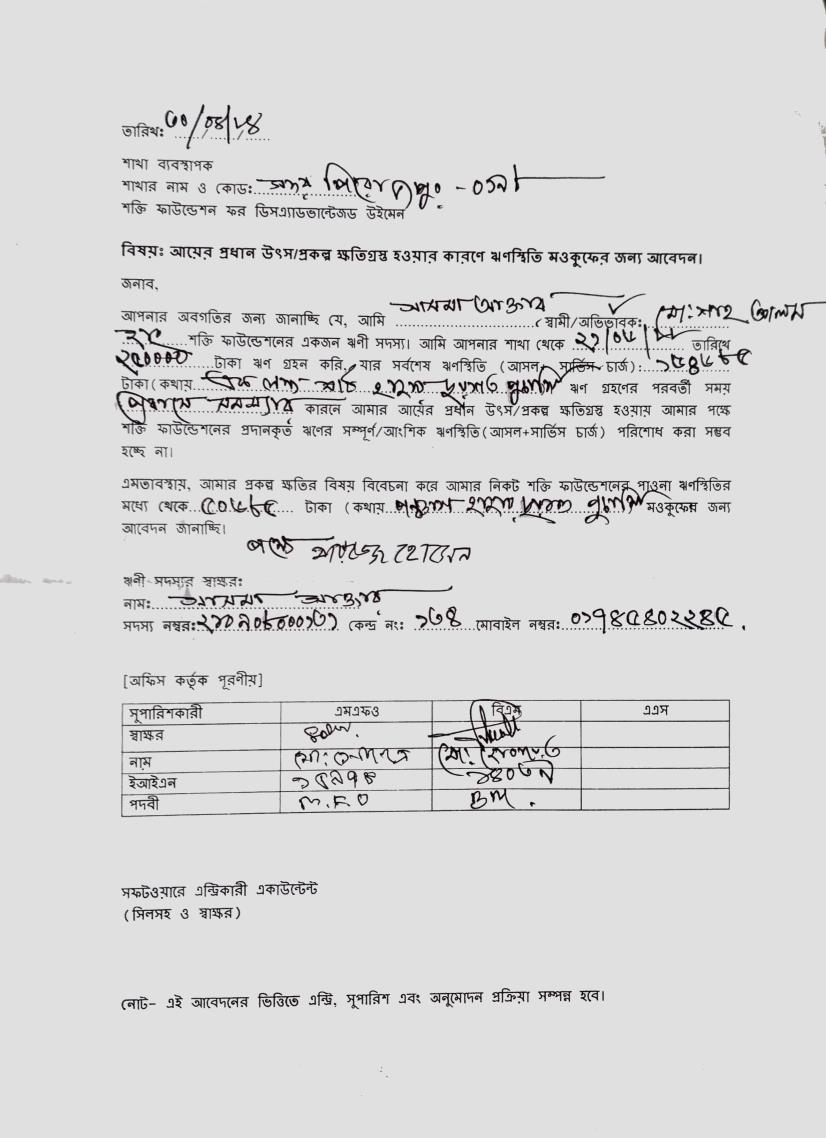 তারিখ: ৩০/০৪/২৪
শাখা ব্যবস্থাপক
শাখার নাম ও কোড: সদর পিরোজপুর - ০১৯
শক্তি ফাউন্ডেশন ফর ডিসএ্যাডভান্টেজড উইমেন
বিষয়: আয়ের প্রধান উৎস/প্রকল্প ক্ষতিগ্রস্থ হওয়ার কারণে ঋণস্থিতি মওকুফের জন্য আবেদন।
জনাব,
আপনার অবগতির জন্য জানাচ্ছি যে, আমি আসমা আক্তার (স্বামী/অভিভাবক: মো: শাহ আলম
শক্তি ফাউন্ডেশনের একজন ঋণী সদস্য। আমি আপনার শাখা থেকে তারিখে
২৫০০০০ টাকা ঋণ গ্রহন করি, যার সর্বশেষ ঋণস্থিতি (আসল+ সার্ভিস চার্জ):
টাকা (কথায় ঋণ গ্রহণের পরবর্তী সময়
কারনে আমার আয়ের প্রধান উৎস/প্রকল্প ক্ষতিগ্রস্থ হওয়ায় আমার পক্ষে
শক্তি ফাউন্ডেশনের প্রদানকৃর্ত ঋণের সম্পূর্ণ/আংশিক ঋণস্থিতি(আসল+সার্ভিস চার্জ) পরিশোধ করা সম্ভব
হচ্ছে না।
এমতাবস্থায়, আমার প্রকল্প ক্ষতির বিষয় বিবেচনা করে আমার নিকট শক্তি ফাউন্ডেশনের পাওনা ঋণস্থিতির
মধ্যে থেকে টাকা (কথায় মওকুফের জন্য
আবেদন জানাচ্ছি।
পক্ষে হোসেন
ঋণী সদস্যর স্বাক্ষর:
নাম: আসমা আক্তার
সদস্য নম্বর: কেন্দ্র নং: ১৩৪ মোবাইল নম্বর: ০১৭৪৫৪০২২৪৫
[অফিস কর্তৃক পূরণীয়]
সুপারিশকারী এমএফও বিএম এএস
স্বাক্ষর
নাম মো: মো:
ইআইএন
পদবী M.F.O BM.
সফটওয়ারে এন্ট্রিকারী একাউন্টেন্ট
(সিলসহ ও স্বাক্ষর)
নোট- এই আবেদনের ভিত্তিতে এন্ট্রি, সুপারিশ এবং অনুমোদন প্রক্রিয়া সম্পন্ন হবে।